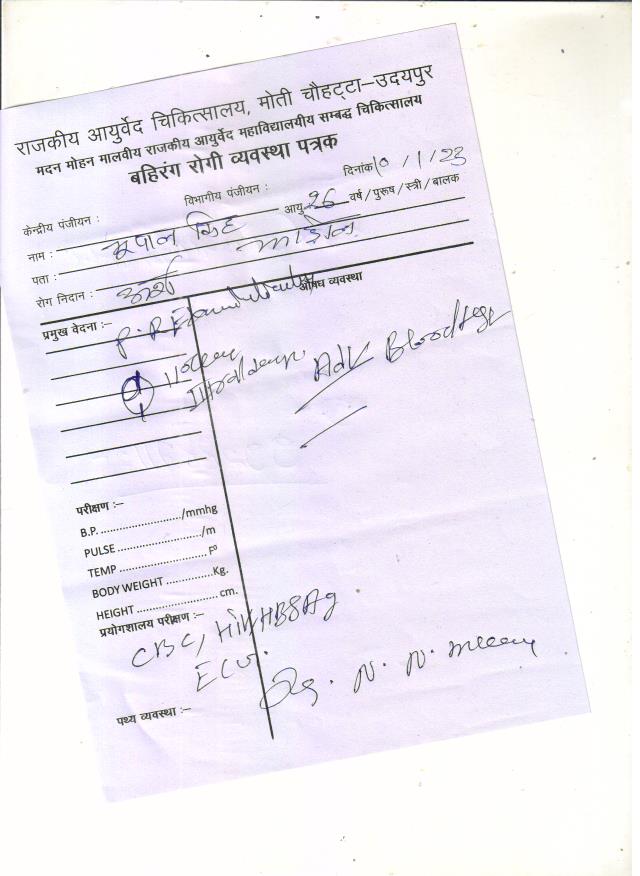 राजकीय आयुर्वेद चिकित्सालय, मोती चौहट्टा–उदयपुर
मदन मोहन मालवीय राजकीय आयुर्वेद महाविद्यालयीय सम्बद्ध चिकित्सालय
बहिरंग रोगी व्यवस्था पत्रक
केन्द्रीय पंजीयन : विभागीय पंजीयन : दिनांक 10/1/23
नाम : भूपाल सिंह आयु 26 वर्ष / पुरूष / स्त्री / बालक
पता :
रोग निदान : अर्श
प्रमुख वेदना :– औषध व्यवस्था
P.R
Adv Blood
परीक्षण :–
B.P. ........................./mmhg
PULSE ........................./m
TEMP ......................... Fº
BODY WEIGHT ..............Kg.
HEIGHT ........................ cm.
प्रयोगशालय परीक्षण :–
CBC, HIV, HBSAg
ECG.
N. N.
पथ्य व्यवस्था :–